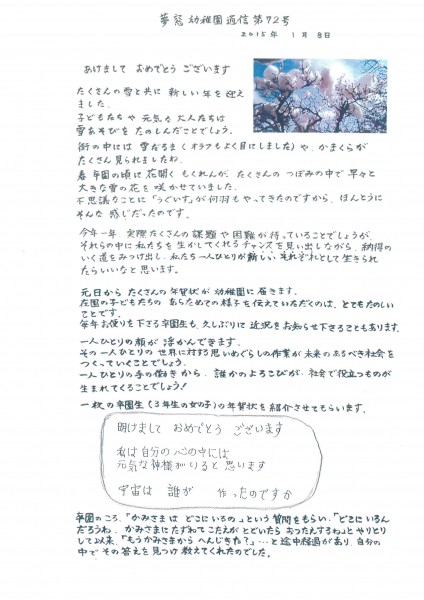 夢窓幼稚園通信 第72号
2015年 1月 8日
あけまして おめでとう ございます
たくさんの雪と共に 新しい年を迎え
ました。
子どもたち や 元気な 大人たちは
雪あそびを たのしんだことでしょう。
街の中には 雪だるま(オラフもよく目にしました)や、かまくらが
たくさん見られましたね。
春 卒園の頃に 花開く もくれんが、たくさんの つぼみの中で 早々と
大きな雪の花を 咲かせていました。
不思議なことに「うぐいす」が何羽もやってきたのですから、ほんとうに
そんな 感じだったのです。
今年一年、実際たくさんの 課題や困難が待っていることでしょうが、
それらの中に 私たちを 生かしてくれるチャンスを見い出しながら、納得の
いく道をみつけ出し、私たち一人ひとりが新しい それぞれとして 生きられ
たらいいなと 思います。
元日から たくさんの 年賀状が 幼稚園に 届きます。
在園の子どもたちの あらためての様子を 伝えていただくのは、とてもたのしい
ことです。
毎年お便りを下さる卒園生も、久しぶりに 近況をお知らせ下さることもあります。
一人ひとりの顔が 浮かんできます。
その一人ひとりの 世界に対する思いめぐらしの作業が 未来のあるべき社会を
つくっていくことでしょう。
一人ひとりの手の働きから、誰かのよろこびが、社会で役立つものが
生まれてくることでしょう!
一枚の卒園生(3年生の女の子)の年賀状を 紹介させてもらいます。
明けまして おめでとう ございます
私は自分の 心の中には
元気な神様がいると 思います
宇宙は 誰が 作ったのですか
卒園のころ、「かみさまは どこにいるの」という質問をもらい、「どこにいるん
だろうね、かみさまに たずねて こたえが とどいたら おつたえするね」とやりとり
して以来、「もうかみさまから へんじきた?」…と途中経過があり、自分の
中で その答えを見つけ 教えてくれたのでした。